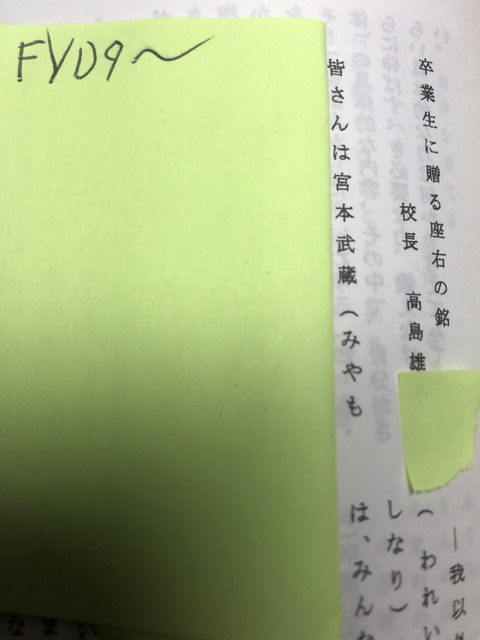 FYD9～
卒業生に贈る座右の銘
校長 高島雄
皆さんは宮本武蔵（みやも
―我以
（われい
しなり）
は、みんな